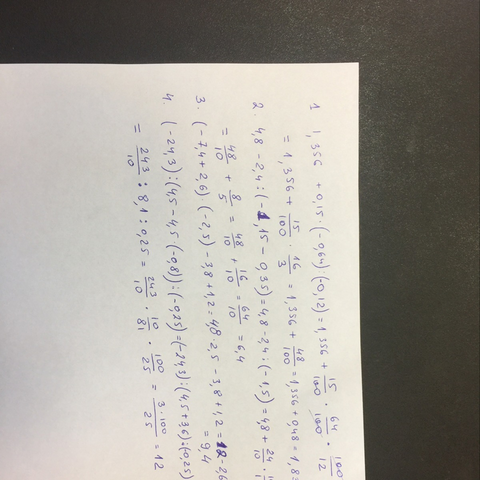 1 1,356 + 0,15 · (-0,64) : (-0,12) = 1,356 + 15/100 · 64/100 · 100/12
= 1,356 + 15/100 · 16/3 = 1,356 + 48/100 = 1,356 + 0,48 = 1,8
2. 4,8 - 2,4 : (-1,15 - 0,35) = 4,8 - 2,4 : (-1,5) = 4,8 + 24/10 ·
= 48/10 + 8/5 = 48/10 + 16/10 = 64/10 = 6,4
3. (-7,4 + 2,6) · (-2,5) - 3,8 + 1,2 = 4,8 · 2,5 - 3,8 + 1,2 = 12 - 2,6
= 9,4
4. (-24,3) : (4,5 - 4,5 · (-0,8)) : (-0,25) = (-24,3) : (4,5 + 3,6) : (-0,25)
= 243/10 : 8,1 : 0,25 = 243/10 · 10/81 · 100/25 = 3·100/25 = 12